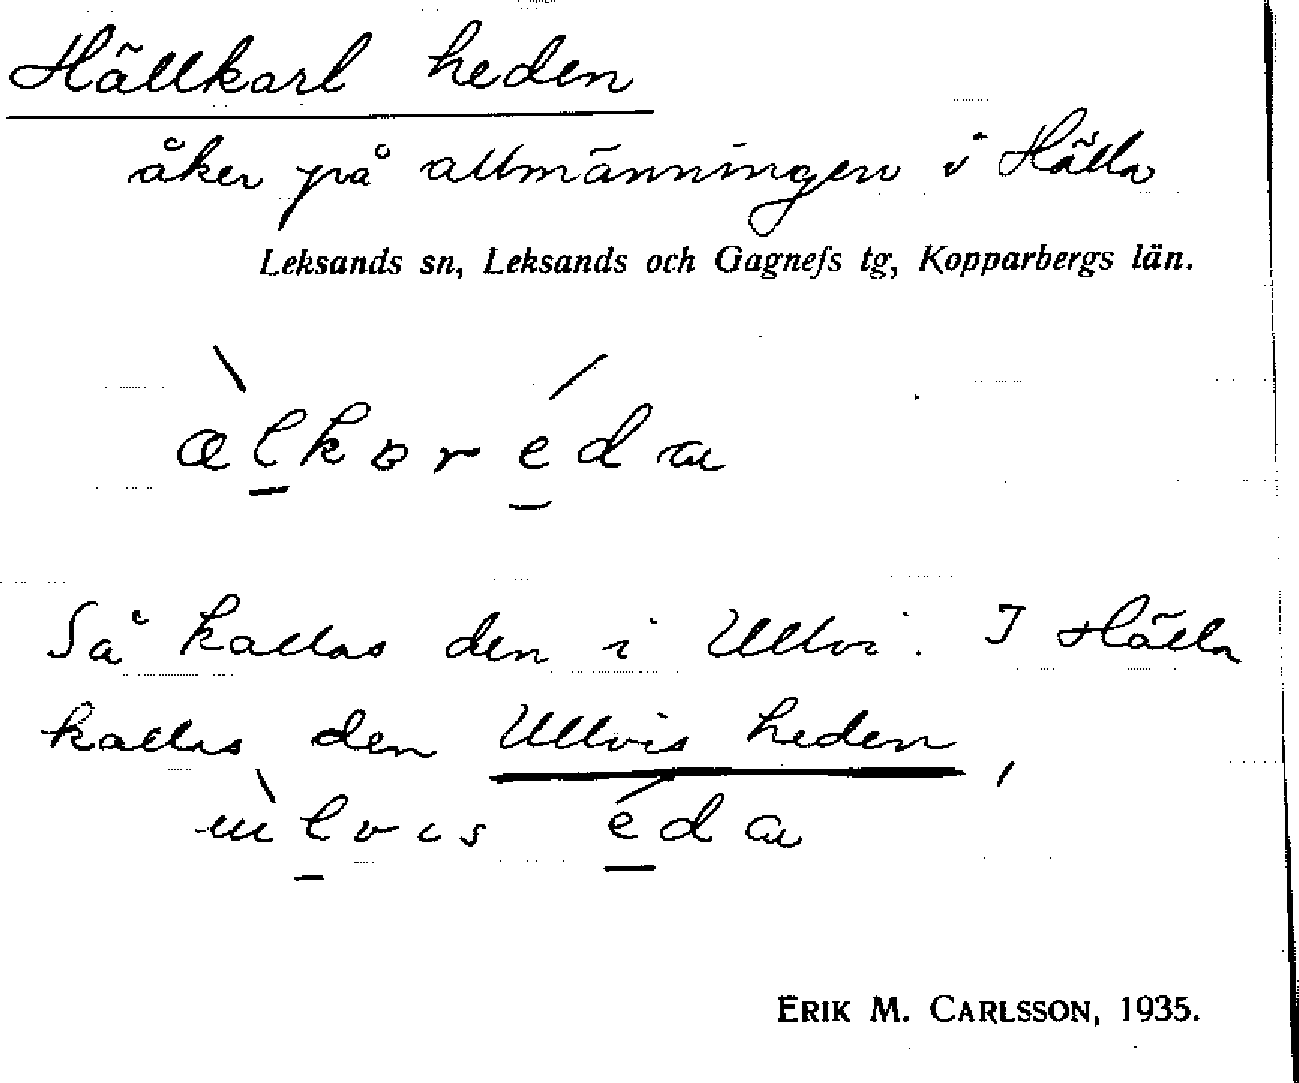 Hällkarl heden
åker på allmänningen i Hälla
Leksands sn, Leksands och Gagnefs tg, Kopparbergs län.
æ̀lkɒr éda
Så kallas den i Ullvi. I Hälla
kallas den Ullvis heden,
ùlvis éda
ERIK M. CARLSSON, 1935.